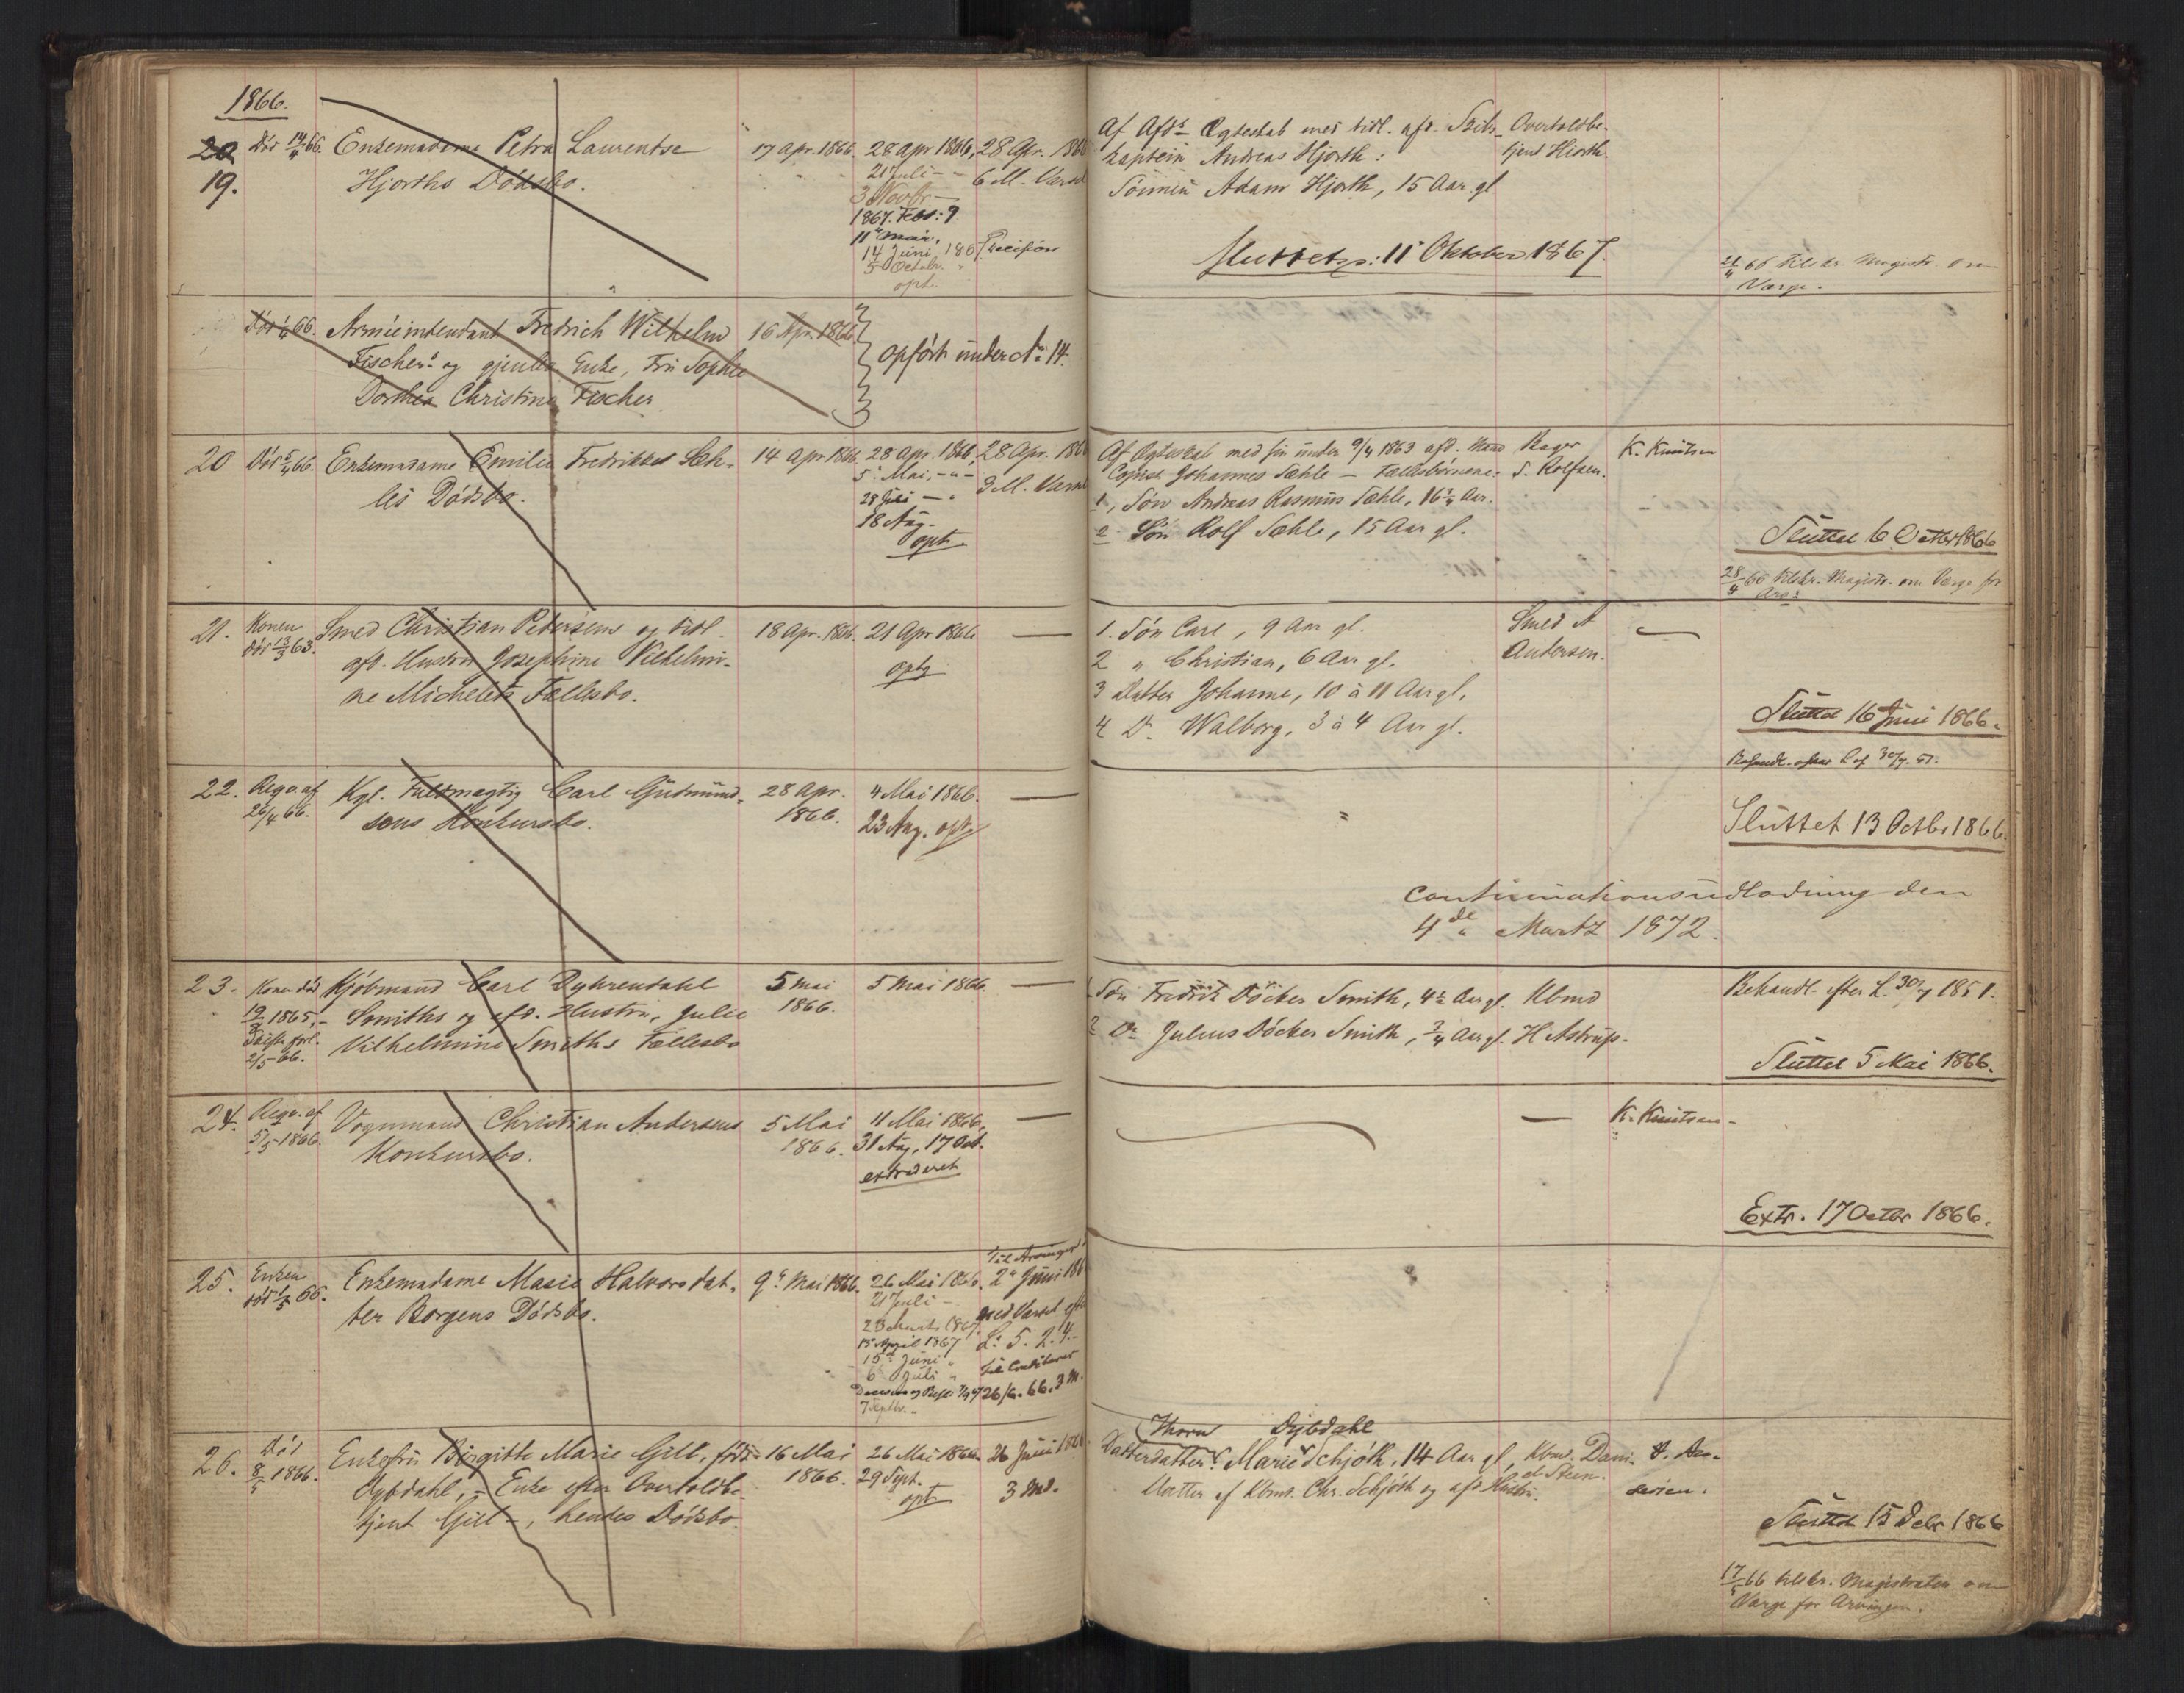 1866.
20 Død 14/4 66. Enkemadame Petra Laurentse 17 Apr. 1866. 28 Apr 1866, 28 Apr. 186
19. Hjorths Dødsbo. 21 Juli - - 6 M. Varsel
3 Novbr -
1867. Febr: 9.
11 Mai.
14 Juni 186
5 Octobr. "
opt.
Død 66. Armeeintendant Fredrich Wilhelm 16 Apr. 1866.
Fischers og gjenlev. Enke, Fru Sophie opført under No 14.
Dorthea Christina Fischer
20 Død 5/4 66. Enkemadame Emilie Fredrikke Sæh- 14 Apr 1866. 28 Apr. 1866, 28 Apr. 186
les Dødsbo. 5 Mai, - " - 3 M. Varsel
28 Juli - "
18 Aug.
opt.
21. Konen Smed Christian Petersens og tidl. 18 Apr. 1866. 21 Apr 1866. —
død 13/3 63. afd. Hustru Josephine Vilhelmi-
ne Michelets Fællesbo. opt.
22. Reqv. af Kgl. Fuldmægtig Carl Gudmund- 28 Apr. 4 Mai 1866. —
26/4 66. sens Konkursbo. 1866. 23 Aug. opt.
23. Konen død Kjøbmand Carl Dyhrendahl 5 Mai 5 Mai 1866. —
1865, - Smiths og afd. Hustru, Julie 1866.
2/5 66. Vilhelmine Smiths Fællesbo
24. Reqv. af Vognmand Christian Andersens 5 Mai 11 Mai 1866, —
5/5 1866. Konkursbo. 1866. 31 Aug, 17 Oct.
extraderet
Til Arvinger
25. Enken Enkemadame Marie Halvorsdat- 9 Mai 1866. 26 Mai 1866. 2 Juni 186
død 1/5 66. ter Borgens Dødsbo. 21 Juli - med Varsel efter
23 Marts 1867 L. 5. 2. 4.
15 April 1867
15 Juni " Til Creditorer
6 Juli " 26/6. 66. 3 M.
7 Septbr. -
26. Død Enkefru Birgitte Marie Gill, født 16 Mai 26 Mai 1866. 26 Juni 186
8/5 1866. Dybdahl, - Enke efter Overtoldbe- 1866. 29 Sept. 3 Md.
tjent Gill -, hendes Dødsbo. opt.
Af Afds Ægteskab med tidl. afd. Skibs- Overtoldbe-
kaptein Andreas Hjorth: tjent Hiorth.
Sønnen Adam Hjorth, 15 Aar gl
Sluttet: 11 Oktober 1867.
21/4 66 tilskr. Magistr. om
Værge.
Af Ægteskab med sin under 9/4 1863 afd. Mand Bager K. Knutsen
Copist Johannes Sæhle — Fællesbørnene: S. Rolfsen.
1, Søn Andreas Rasmus Sæhle, 16 3/4 Aar.
2 Søn Rolf Sæhle, 15 Aar gl.
Sluttet 6 Octbr 1866
28/4 66 tilskr. Magistr. om Værge for
Arv:
1. Søn Carl, 9 Aar gl. Smed A —
2 " Christian, 6 Aar gl. Andersen.
3 Datter Johanne, 10 à 11 Aar gl,
4 Do. Walborg, 3 à 4 Aar gl.
Sluttet 16 Juni 1866.
Behandl. efter L af 30/7. 51.
Sluttet 13 Octbr 1866.
Continuationsudlodning den
4de Martz 1872.
1 Søn Fredrik Döcker Smith, 4 1/2 Aar gl. Kbmd Behandl. efter L. 30/7 1851.
2 Do Julius Döcker Smith, 3/4 Aar gl. H Astrup.
Sluttet 5 Mai 1866.
— K. Knutsen
Extr. 17 Octbr 1866.
Thora Dybdahl
Datterdatter: Marie Schjøth, 14 Aar gl, Kbmd. Dani-
Datter af Kbmd. Chr. Schjøth og afd Hustru. el Steen.
Sluttet 15 Decbr 1866
17/5 66 tilskr. Magistraten om
Værge for Arvingen.